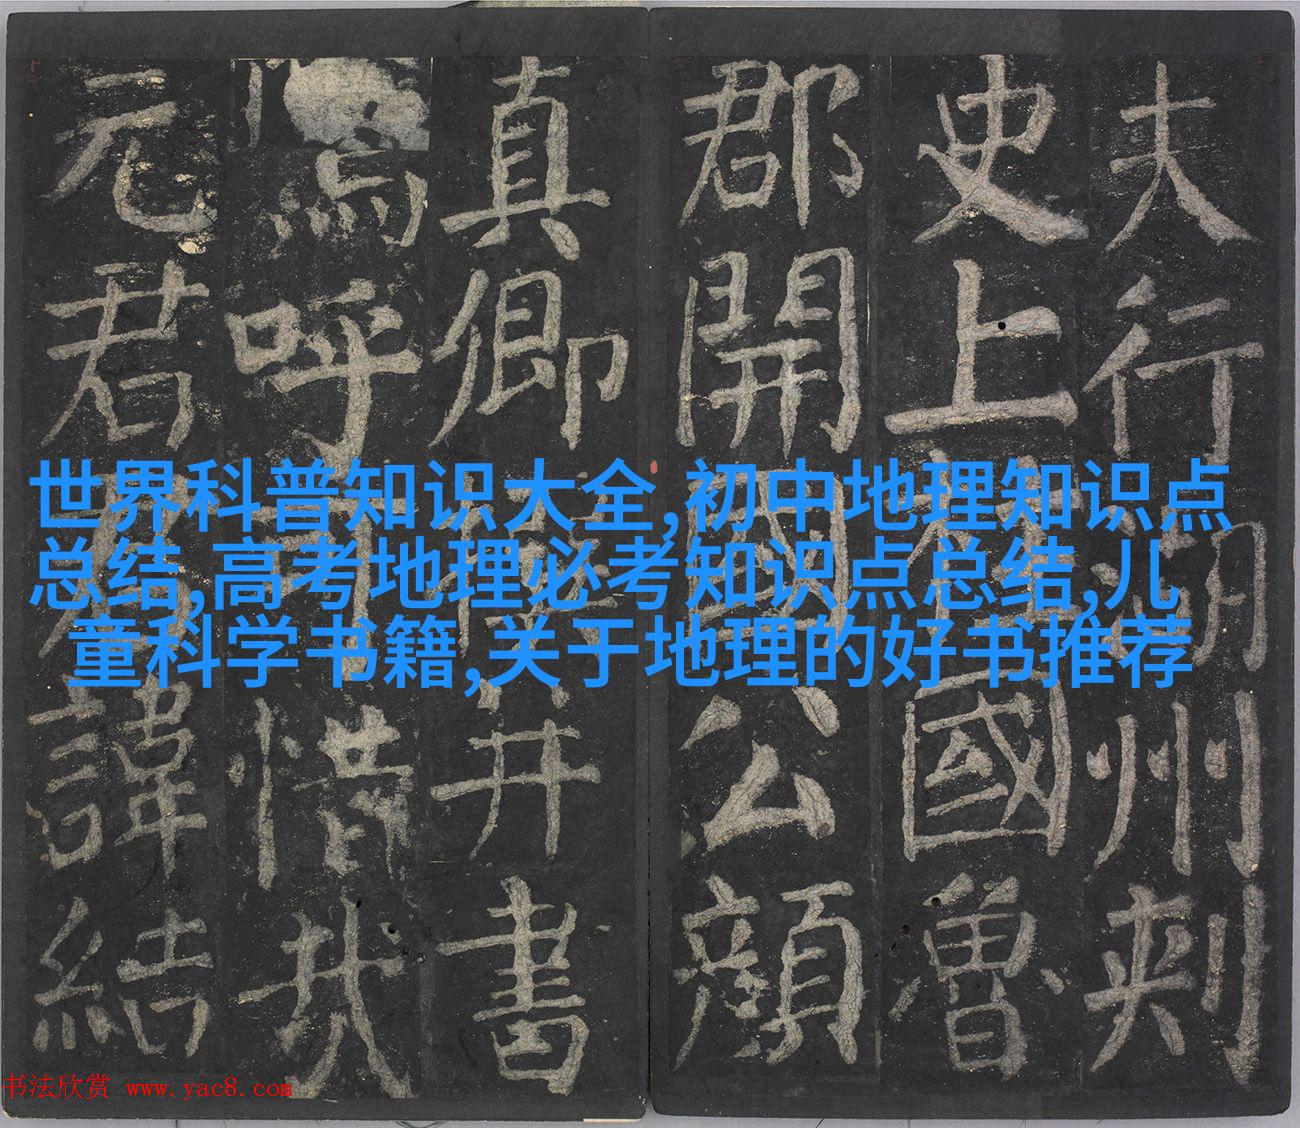 夫行湖州刺
史上柱國魯
郡開國公顔
真卿撰并書
嗚呼可惜哉
元君君諱結
世界科普知识大全,初中地理知识点
总结,高考地理必考知识点总结,儿
童科学书籍,关于地理的好书推荐
书法欣赏 www.yac8.com